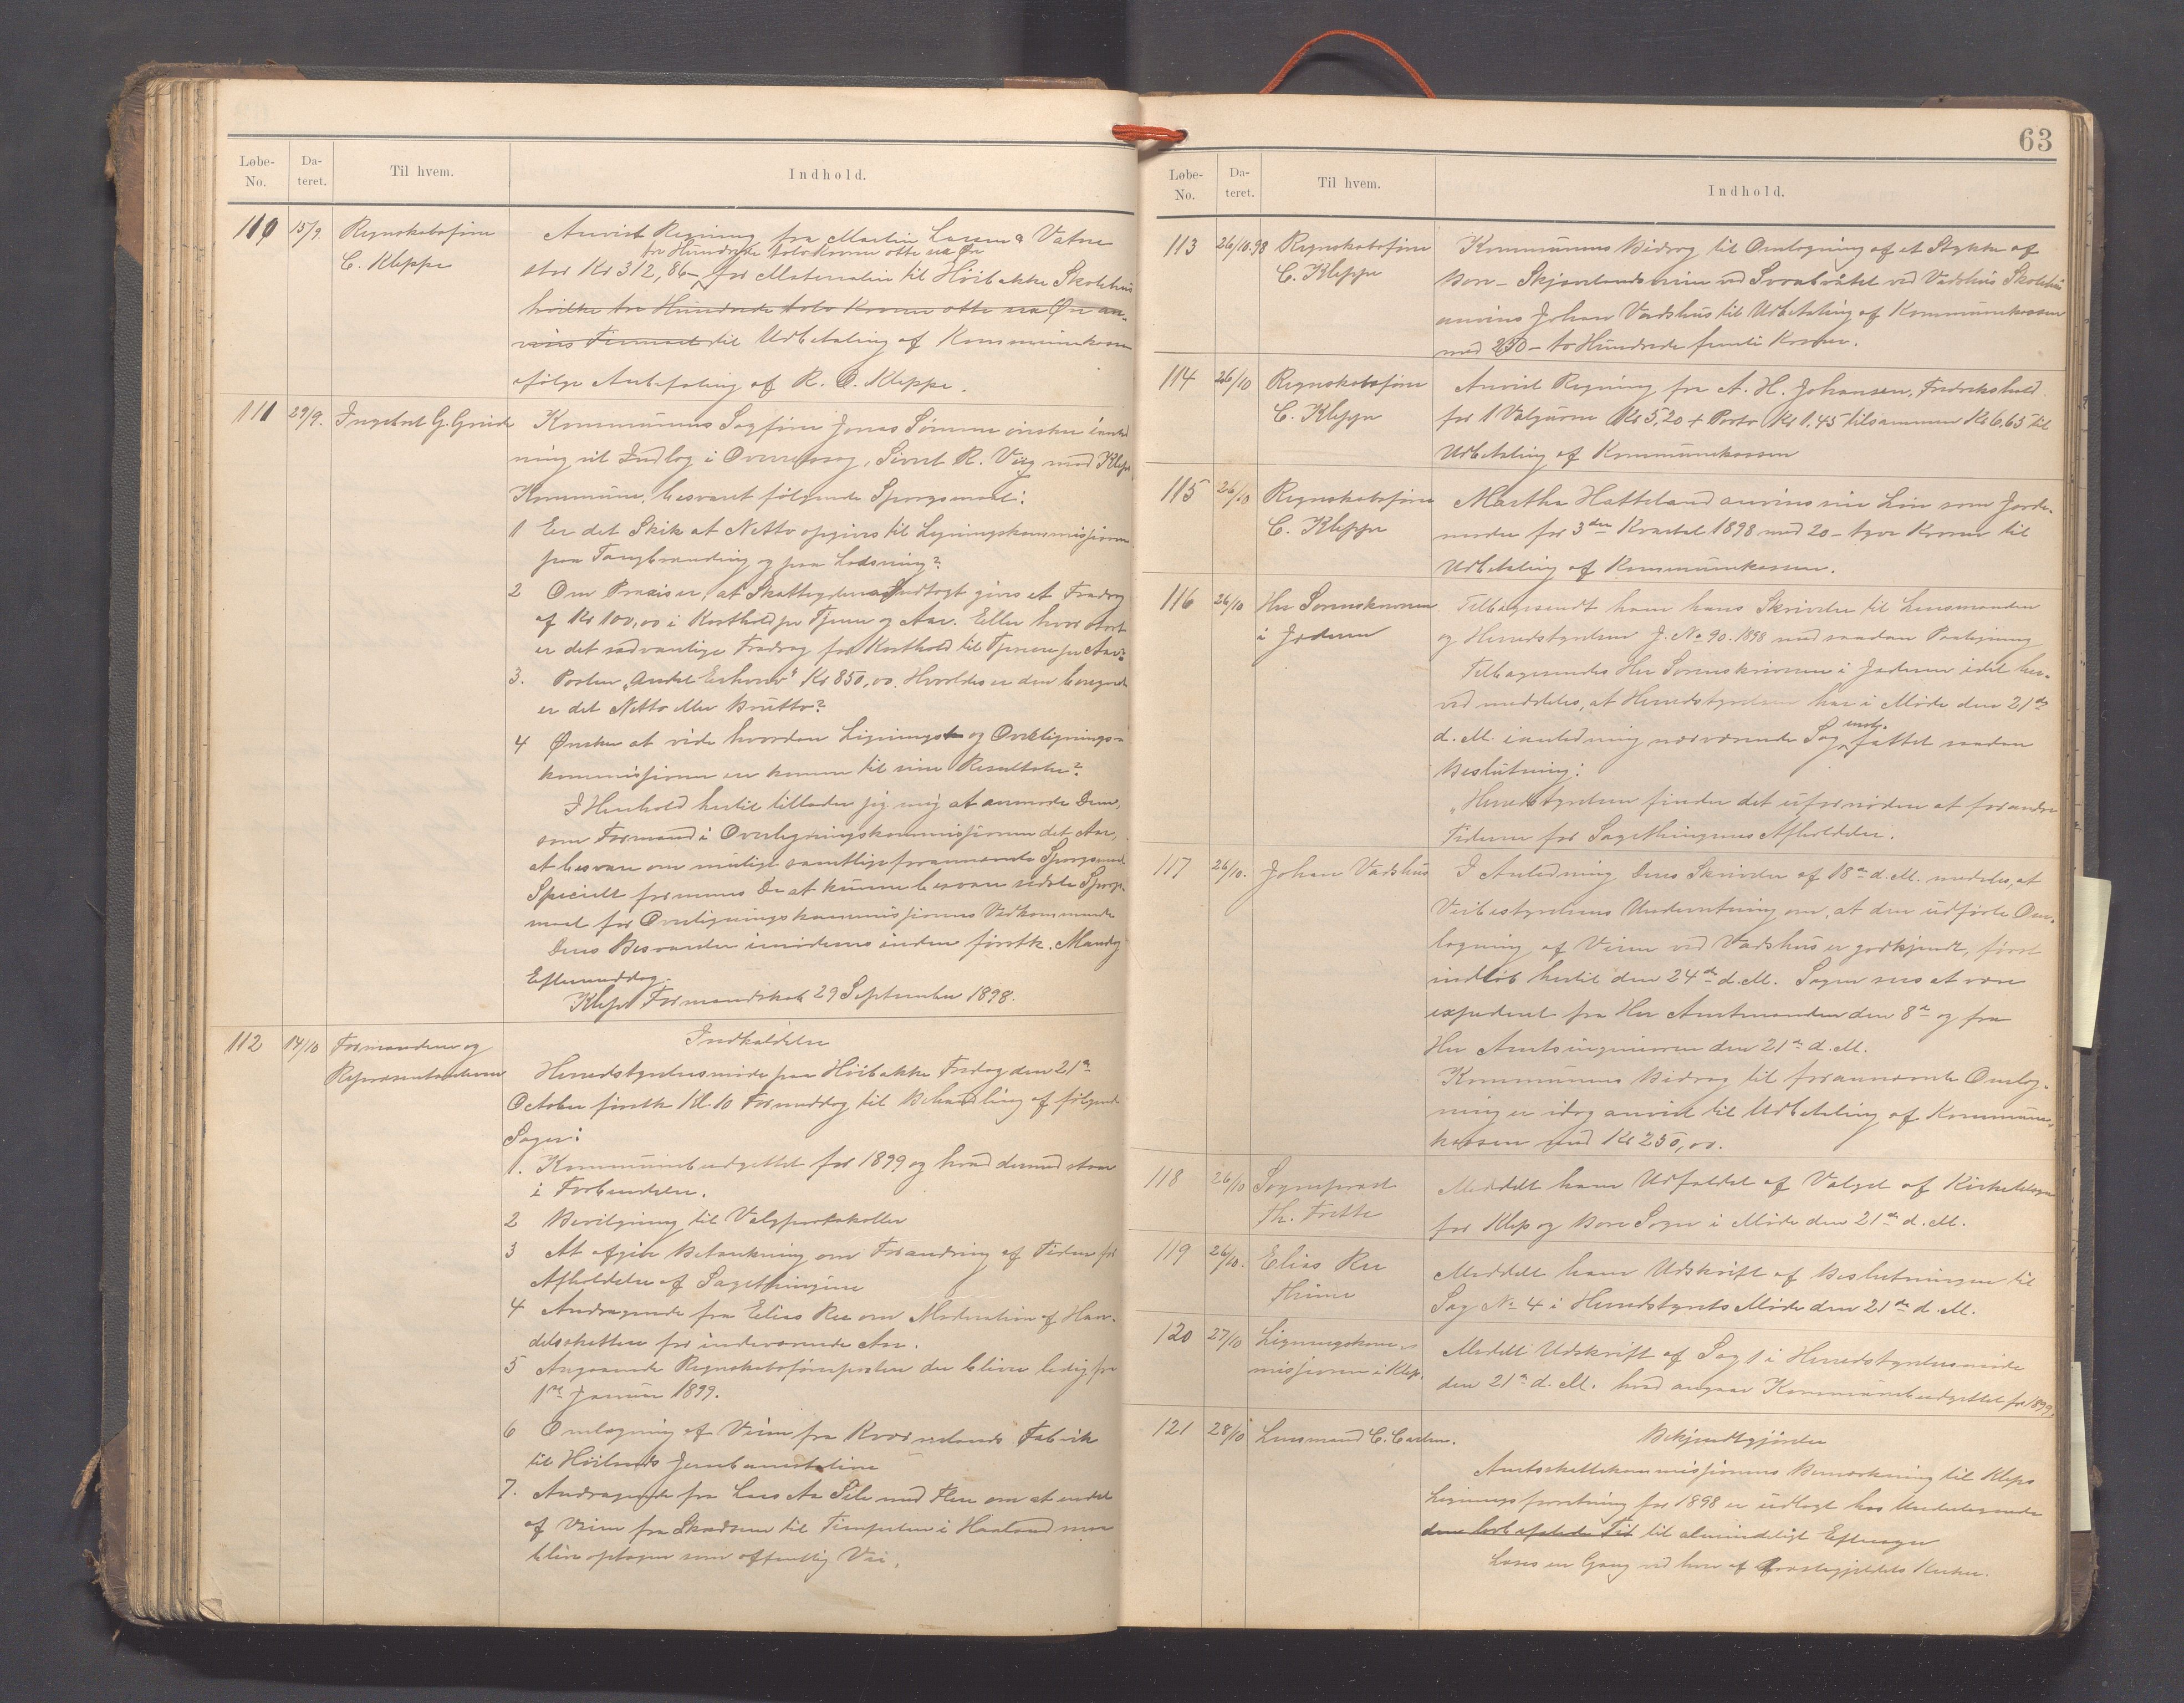 Løbe-No.
Da-teret.
Til hvem.
Indhold.
110
15/9.
Regnskabsfører
C. Kleppe
Anvist Regning fra Martin Larsen Vatne
tre Hundrede tolv Kroner otte
stor Kr 312,86 – for Materialier til Höibakke Skolehus
hvilke tre Hundrede tolv Kroner otte Øre an-
vises til Udbetaling af Kommunekassen
ifølge Anbefaling af R. O. Kleppe.
111
29/9.
Ingebret G. Grude
Kommunens Sagfører Jonas Sømme ønsker i anled
ning et Indlæg i Overretssag, Sivert R. Vig mod Klep
Kommune, besvaret følgende Spørgsmaal:
1 Er det Skik at Netto opgives til Ligningskommissionen
paa Tangbrænding og paa Lodsning?
2 Om Praxis er, at Skatteydernes Indtægt gives et Fradrag
af Kr 100,00 i Kosthold pr Tjener og Aar. Eller hvor stort
er det sædvanlige Fradrag for Kosthold til Tjenere pr Aar?
3. Posten "Andet Erhverv" Kr 850,00. Hvorledes er den beregnet
er det Netto eller Brutto?
4 Ønsker at vide hvordan Lignings og Overlignings-
kommissionen er kommen til sine Resultater?
I Henhold hertil tillader jeg mig at anmode Dem,
som Formand i Overligningskommissionen det Aar,
at besvare om muligt samtlige forannævnte Spørgsmaal.
Specielt formenes De at kunne besvare sidste Spørgs-
maal for Overligningskommissionens Vedkommende
Deres Besvarelse imødesees inden førstk. Mandag
Eftermiddag.
Klep Formandskab 29 September 1898.
112
14/10
Formændene og
Repræsentanterne
Indkaldelse
Herredstyrelsesmøde paa Höibakke Fredag den 21de
October førstk Kl. 10 Formiddag til Behandling af følgende
Sager:
1. Kommunebudgettet for 1899 og hvad dermed staar
i Forbindelse.
2 Bevilgning til Valgprotokoller
3 At afgive Betænkning om Forandring af Tiden for
Afholdelse af Sagethingene
4 Andragende fra Elias Ree om Moderation af Han-
delsskatten for indeværende Aar.
5 Angaaende Regnskabsførerposten der bliver ledig fra
1ste Januar 1899.
6 Omlægning af Veien fra Kværnelands Fabrik
til Höilands Jernbanestation
7. Andragende fra Lars Aa Sele med Flere om at endel
af Veien fra Skadsem til Timpelen i Haaland maa
blive optagen som offentlig Vei.
63
Løbe-No.
Da-teret.
Til hvem.
Indhold.
113
26/10.98
Regnskabsfører
C. Kleppe
Kommunens Bidrag til Omlægning af et Stykke af
Bore – Skjævelandsveien ved Vadshus Skolehus
anvises Johan Vadshus til Udbetaling af Kommunekassen
med 250 – to Hundrede femti Kroner.
114
26/10
Regnskabsfører
C. Kleppe
Anvist Regning fra A. H. Johansen, Fredrikshald
for 1 Valgurne Kr 5,20 + Porto Kr 1,45 tilsammen Kr 6,65 til
Udbetaling af Kommunekassen
115
26/10
Regnskabsfører
C. Kleppe
Martha Hatteland anvises sin Løn som Jorde-
moder for 3die Kvartal 1898 med 20 – tyve Kroner til
Udbetaling af Kommunekassen.
116
26/10
Hr Sorenskriveren
i Jæderen
Tilbagesendt ham hans Skrivelse til Lensmanden
og Herredstyrelsen J. No 90. 1898 med saadan Paategning
Tilbagesendes Hr Sorenskriveren i Jæderen idet her-
ved meddeles, at Herredstyrelsen har i Møde den 21de
d. M. i anledning nærværende Sag enst. fattet saadan
Beslutning:
"Herredstyrelsen finder det ufornøden at forandre
Tiderne for Sagethingenes Afholdelse.
117
26/10.
Johan Vadshus
I Anledning Deres Skrivelse af 18de d. M. meddeles, at
Veibestyrelsens Underretning om, at den udførte Om-
lægning af Veien ved Vadshus er godkjendt, først
indløb hertil den 24de d. M. Sagen sees at være
expederet fra Hr Amtmanden den 8de og fra
Hr Amtsingeniøren den 21de d. M.
Kommunens Bidrag til forannævnte Omlæg-
ning er idag anvist til Udbetaling af Kommune-
kassen med Kr 250,00.
118
26/10
Sogneprest
Th. Frette
Meddelt ham Udfaldet af Valget af Kirketilsyn
for Klep og Bore Sogn i Møde den 21de d. M.
119
26/10.
Elias Ree
Thime
Meddelt ham Udskrift af Beslutningen til
Sag No 4 i Herredstyrets Møde den 21de d. M.
120
27/10
Ligningskom-
missionen i Klep.
Meddelt Udskrift af Sag 1 i Herredstyrelsesmøde
den 21de d. M. hvad angaar Kommunebudgettet for 1899.
121
28/10
Lensmand C. Carlsen.
Bekjendtgjørelse
Amtsskattekommissionens Bemærkning til Kleps
Ligningsforretning for 1898 er udlagt hos Undertegnede
den lovbefalede Tid til almindeligt Eftersyn
Læses en Gang ved hver af Præstegjeldets Kirker.